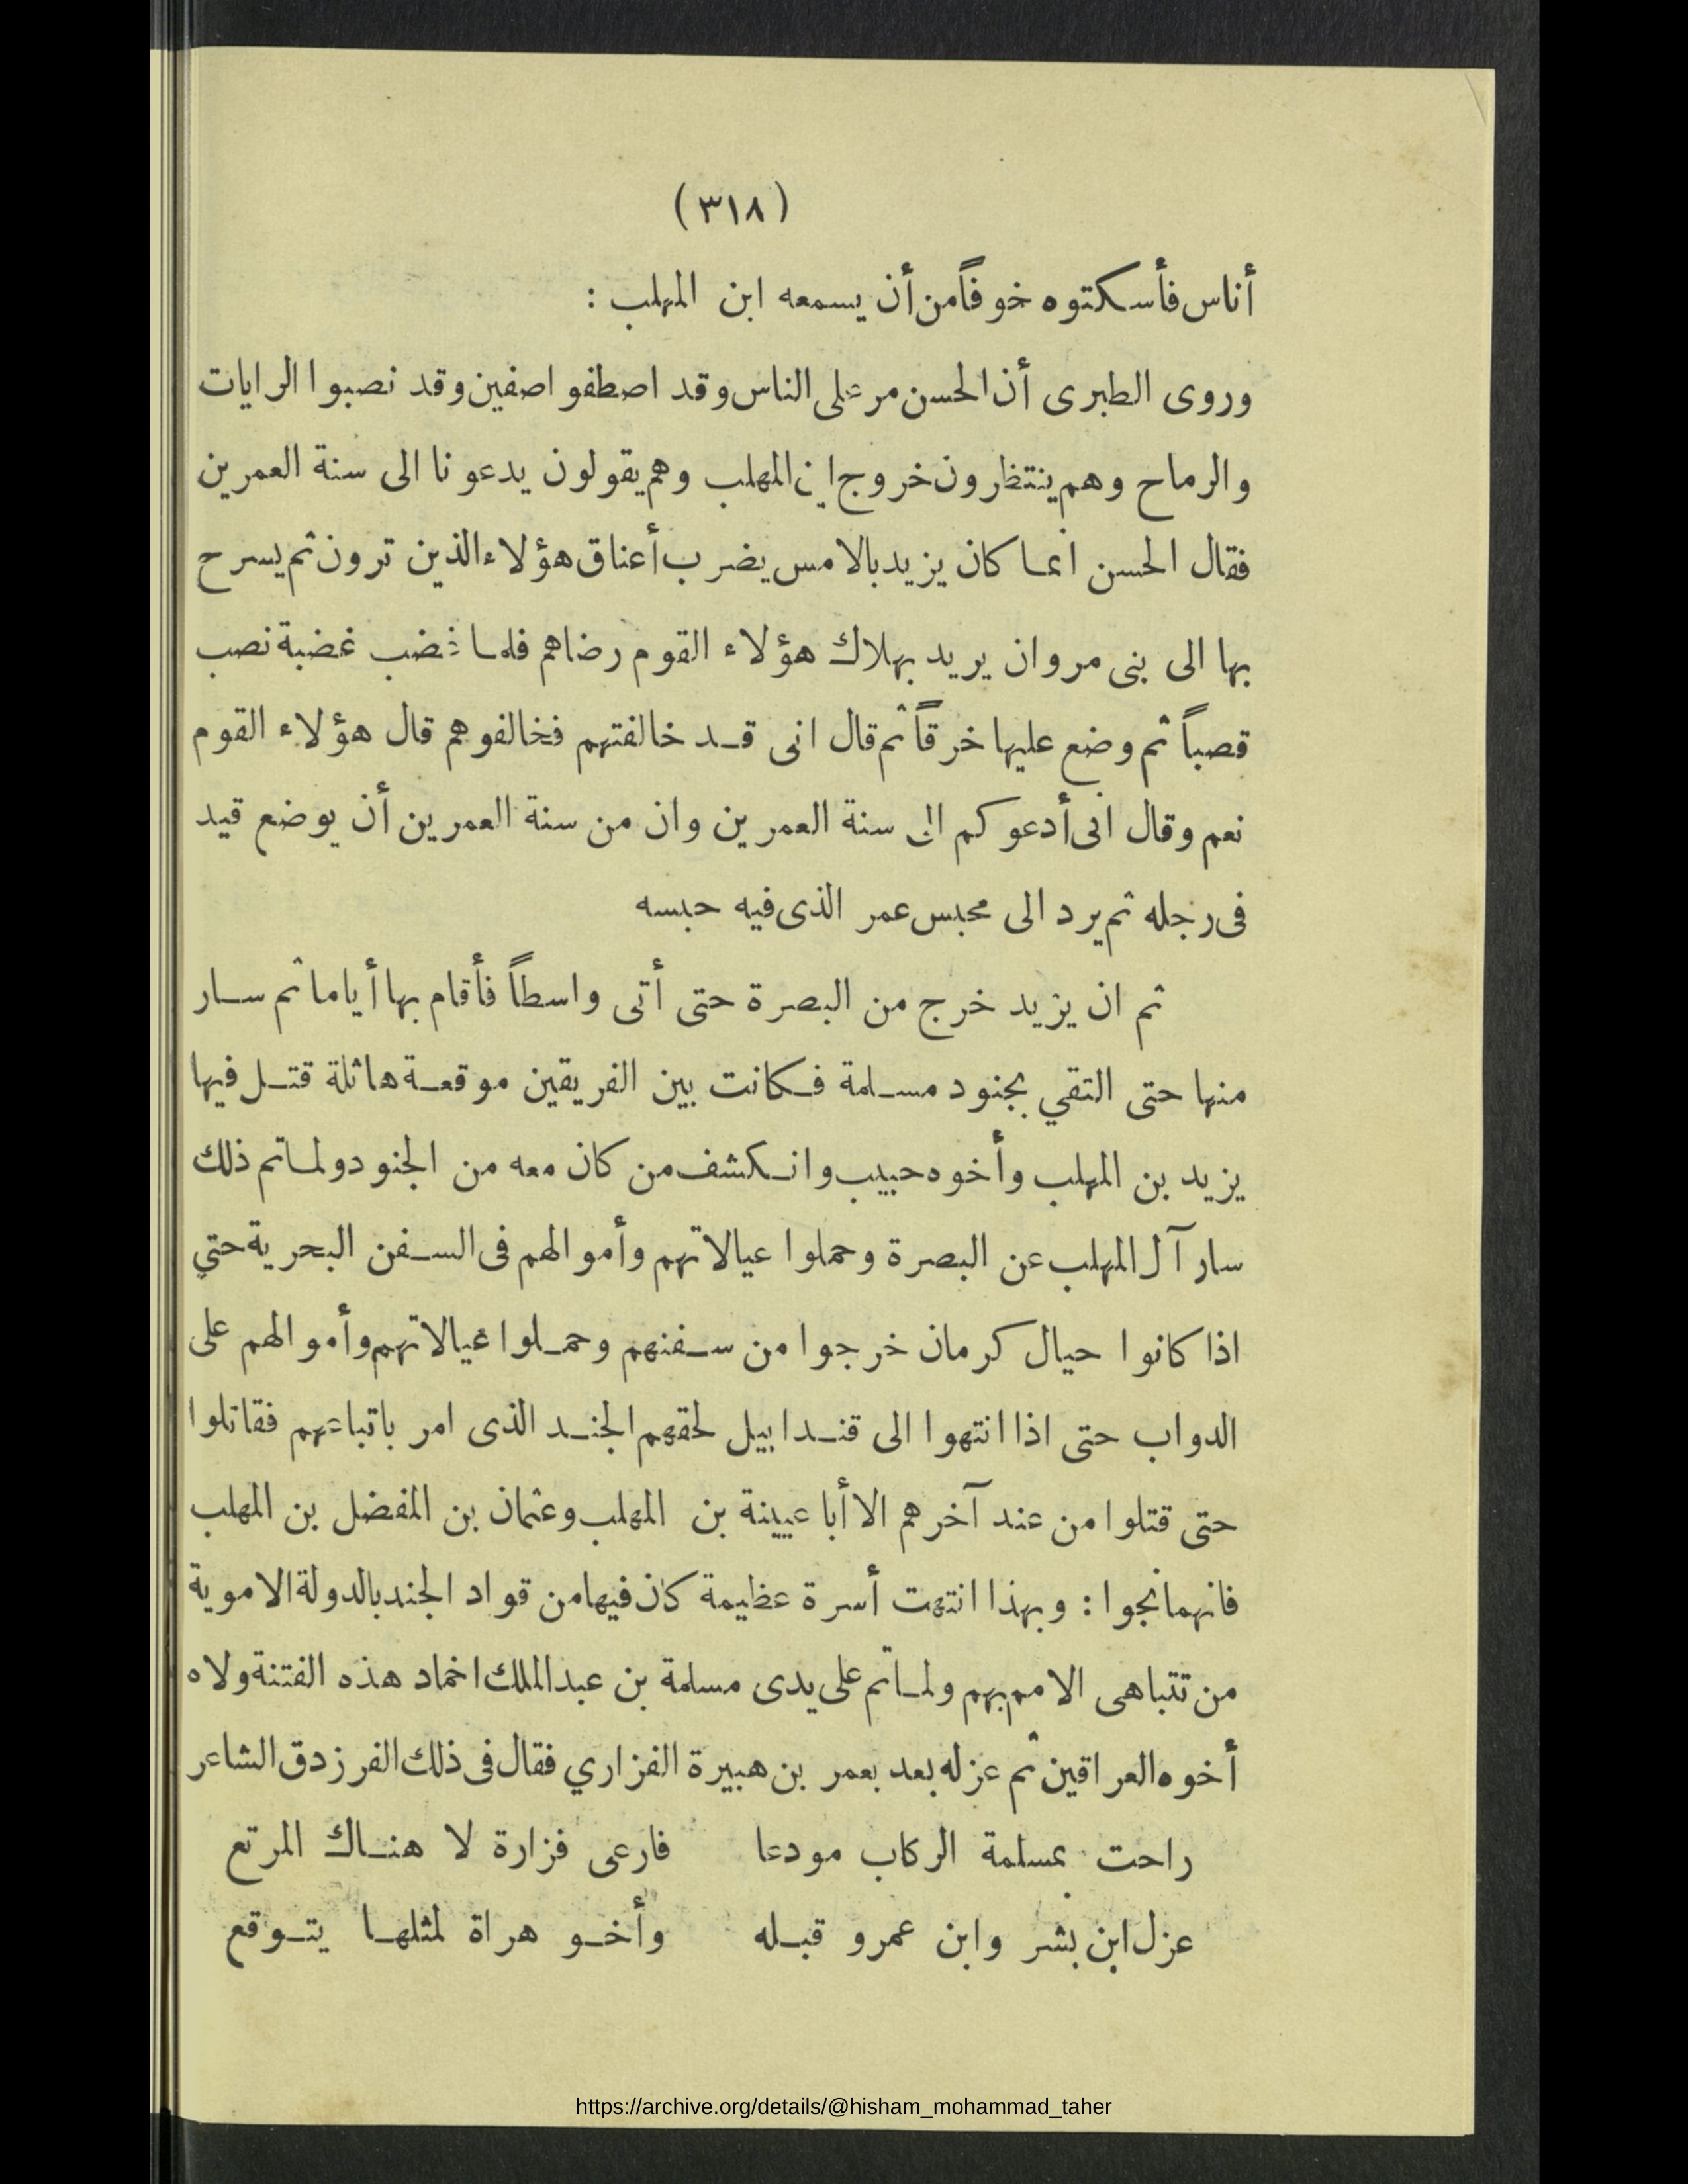 (٣١٨)
أناس فأسكتوه خوفاً من أن يسمعه ابن المهلب :
وروى الطبرى أن الحسن مر على الناس وقد اصطفوا صفين وقد نصبوا الرايات
والرماح وهم ينتظرون خروج ابن المهلب وهم يقولون يدعونا الى سنة العمرين
فقال الحسن انما كان يزيد بالامس يضرب أعناق هؤلاء الذين ترون ثم يسرح
بها الى بنى مروان يريد بهلاك هؤلاء القوم رضاهم فلما غضب غضبة نصب
قصباً ثم وضع عليها خرقاً ثم قال انى قد خالفتهم فخالفوهم قال هؤلاء القوم
نعم وقال انى أدعوكم الى سنة العمرين وان من سنة العمرين أن يوضع قيد
فى رجله ثم يرد الى محبس عمر الذى فيه حبسه
ثم ان يزيد خرج من البصرة حتى أتى واسطاً فأقام بها أياما ثم سار
منها حتى التقي بجنود مسلمة فكانت بين الفريقين موقعة هائلة قتل فيها
يزيد بن المهلب وأخوه حبيب وانكشف من كان معه من الجنود ولما تم ذلك
سار آل المهلب عن البصرة وحملوا عيالاتهم وأموالهم فى السفن البحرية حتي
اذا كانوا حيال كرمان خرجوا من سفنهم وحملوا عيالاتهم وأموالهم على
الدواب حتى اذا انتهوا الى قندابيل لحقهم الجند الذى امر باتباعهم فقاتلوا
حتى قتلوا من عند آخرهم الا أبا عيينة بن المهلب وعثمان بن المفضل بن المهلب
فانهما نجوا : وبهذا انتهت أسرة عظيمة كان فيها من قواد الجند بالدولة الاموية
من تتباهى الامم بهم ولما تم على يدى مسلمة بن عبد الملك اخماد هذه الفتنة ولاه
أخوه العراقين ثم عزله بعد بعمر بن هبيرة الفزاري فقال فى ذلك الفرزدق الشاعر
راحت بمسلمة الركاب مودعا فارعى فزارة لا هناك المرتع
عزل ابن بشر وابن عمرو قبله وأخو هراة لمثلها يتوقع
https://archive.org/details/@hisham_mohammad_taher